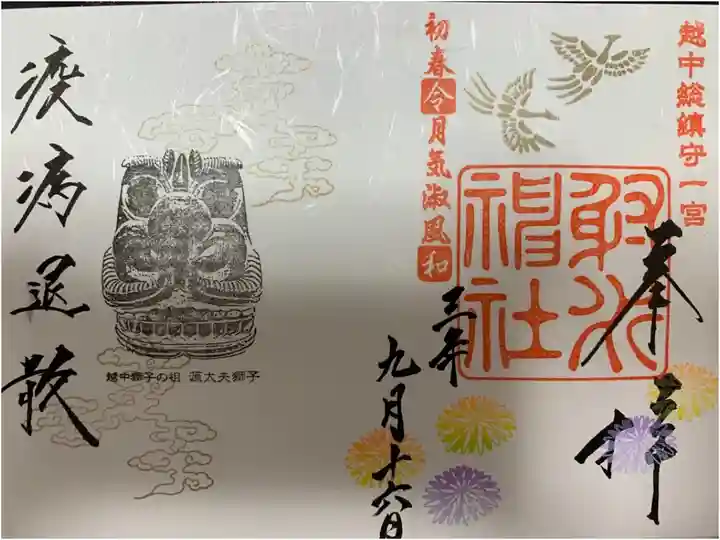 越中総鎮守一宮
奉拝
射水神社
初春令月気淑風和
三年
九月十六日
疫病退散
越中獅子の祖 源太夫獅子